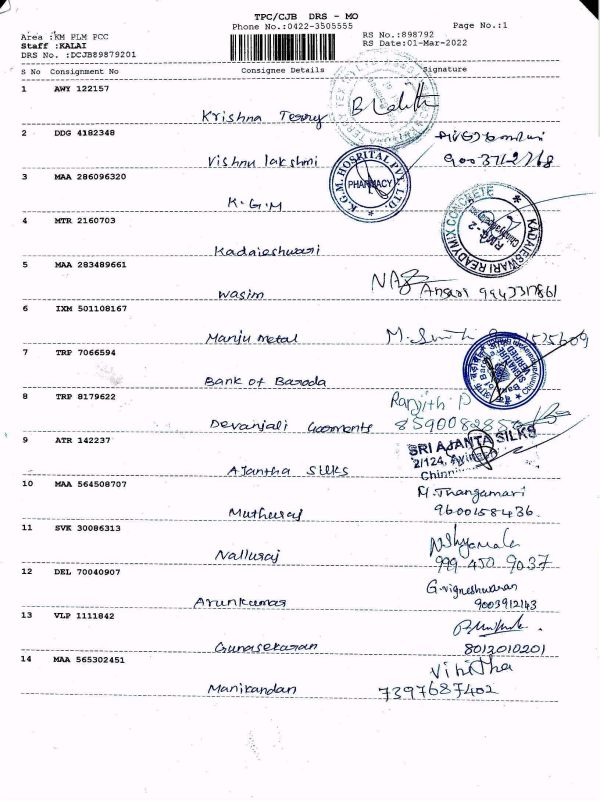 TPC/CJB DRS - MO
Phone No.:0422-3505555
Page No.:1
Area :KM PLM PCC
RS No.:898792
Staff :KALAI
RS Date:01-Mar-2022
DRS No. :DCJB89879201
S No Consignment No Consignee Details Signature
1 AWY 122157
Krishna Terry
2 DDG 4182348
Vishnu lakshmi
3 MAA 286096320
K.G.M
K.G.M. HOSPITAL PVT. LTD.
PHARMACY
4 MTR 2160703
Kadaieshwari
KADAIESWARI READYMIX CONCRETE
RMC - 2
5 MAA 283489661
Wasim
Ansari
6 IXM 501108167
Manju metal
7 TRP 7066594
Bank of Baroda
8 TRP 8179622
Ranjith P
Devanjali Gaoments
9 ATR 142237
SRI AJANTA SILKS
2/124,
Ajantha SILKS
10 MAA 564508707
M.Thangamari
Muthuraj 9600158436.
11 SVK 30086313
N.Shyamala
Nalluraj 999 450 9037
12 DEL 70040907
G.vigneshwaran
Arunkumar 9003912143
13 VLP 1111842
Gunasekaran 8012010201
14 MAA 565302451
Manikandan 7397687402